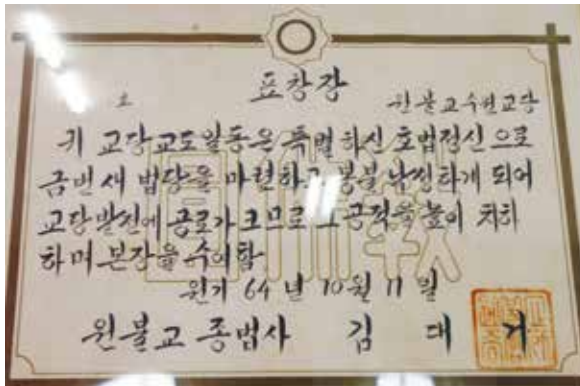 호
표창장
원불교수원교당
귀 교당교도일동은 특별하신 호법정신으로
금번 새 법당을 마련하고 봉불 낙성하게 되어
교당발전에 공로가 크므로 그 공적을 높이 치하
하며 본장을 수여함
원기 64 년 10 월 11 일
원불교 종법사 김 대 거
圓佛敎